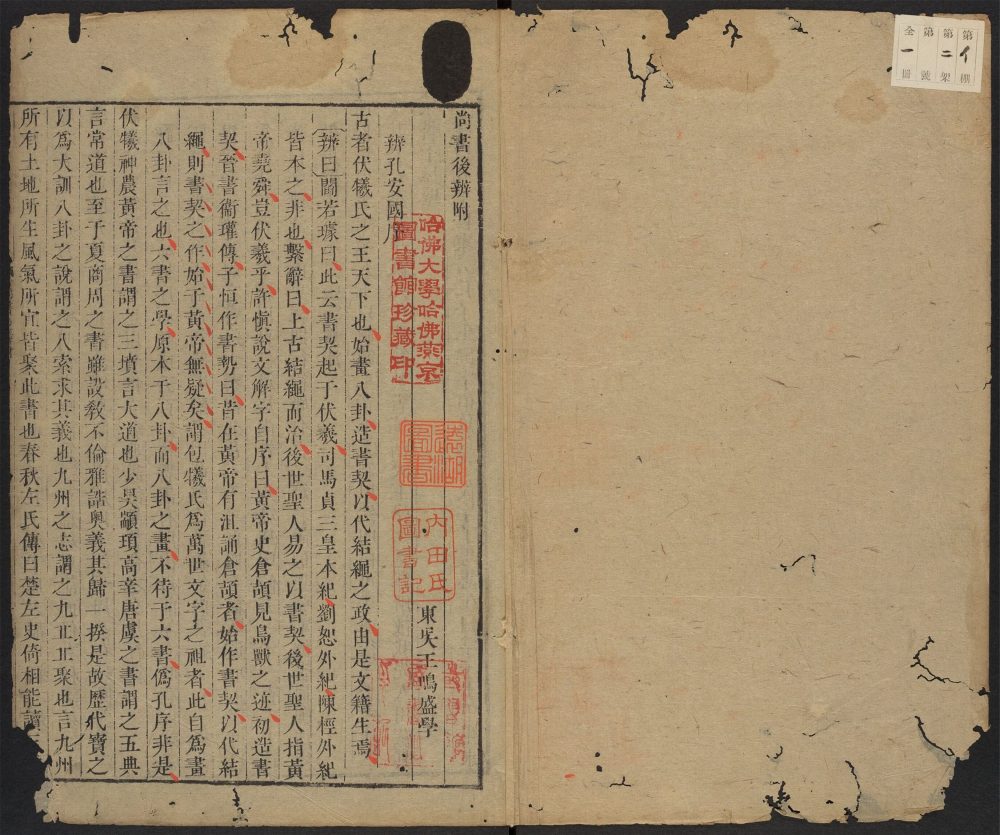 尚書後辨附
東吳王鳴盛學
辨孔安國序
古者伏犧氏之王天下也始畫八卦造書契以代結繩之政由是文籍生焉
辨曰閻若璩曰此云書契起于伏羲司馬貞三皇本紀劉恕外紀陳桱外紀
皆本之非也繫辭曰上古結繩而治後世聖人易之以書契後世聖人指黃
帝堯舜豈伏羲乎許愼說文解字自序曰黃帝史倉頡見鳥獸之迹初造書
契晉書衞瓘傳子恒作書勢曰昔在黃帝有沮誦倉頡者始作書契以代結
繩則書契之作始于黃帝無疑矣謂包犧氏爲萬世文字之祖者此自爲畫
八卦言之也六書之學原本于八卦而八卦之畫不待于六書僞孔序非是
伏犧神農黃帝之書謂之三墳言大道也少昊顓頊高辛唐虞之書謂之五典
言常道也至于夏商周之書雖設敎不倫雅誥奧義其歸一揆是故歷代寶之
以爲大訓八卦之說謂之八索求其義也九州之志謂之九丠丠聚也言九州
所有土地所生風氣所宜皆聚此書也春秋左氏傳曰楚左史倚相能讀
哈佛大學哈佛燕京
圖書館珍藏印
內田氏
圖書記
第イ棚
第二架
第 號
全一圖